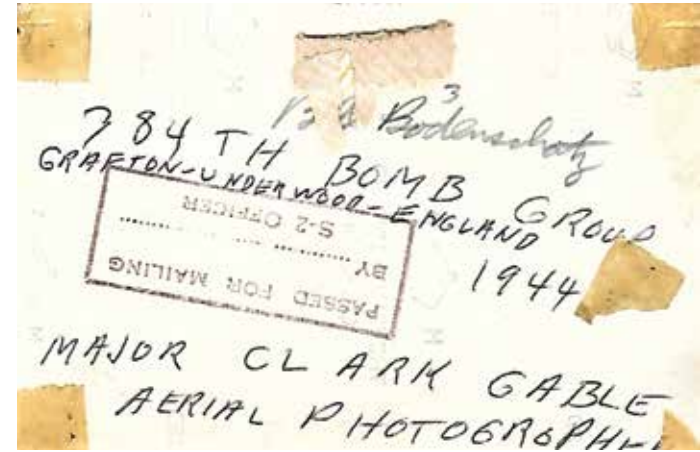 3
Bodenschatz
384 TH BOMB GROUP
GRAFTON-UNDERWOOD-ENGLAND
1944
PASSED FOR MAILING
BY
S-2 OFFICER
MAJOR CLARK GABLE
AERIAL PHOTOGRAPHER